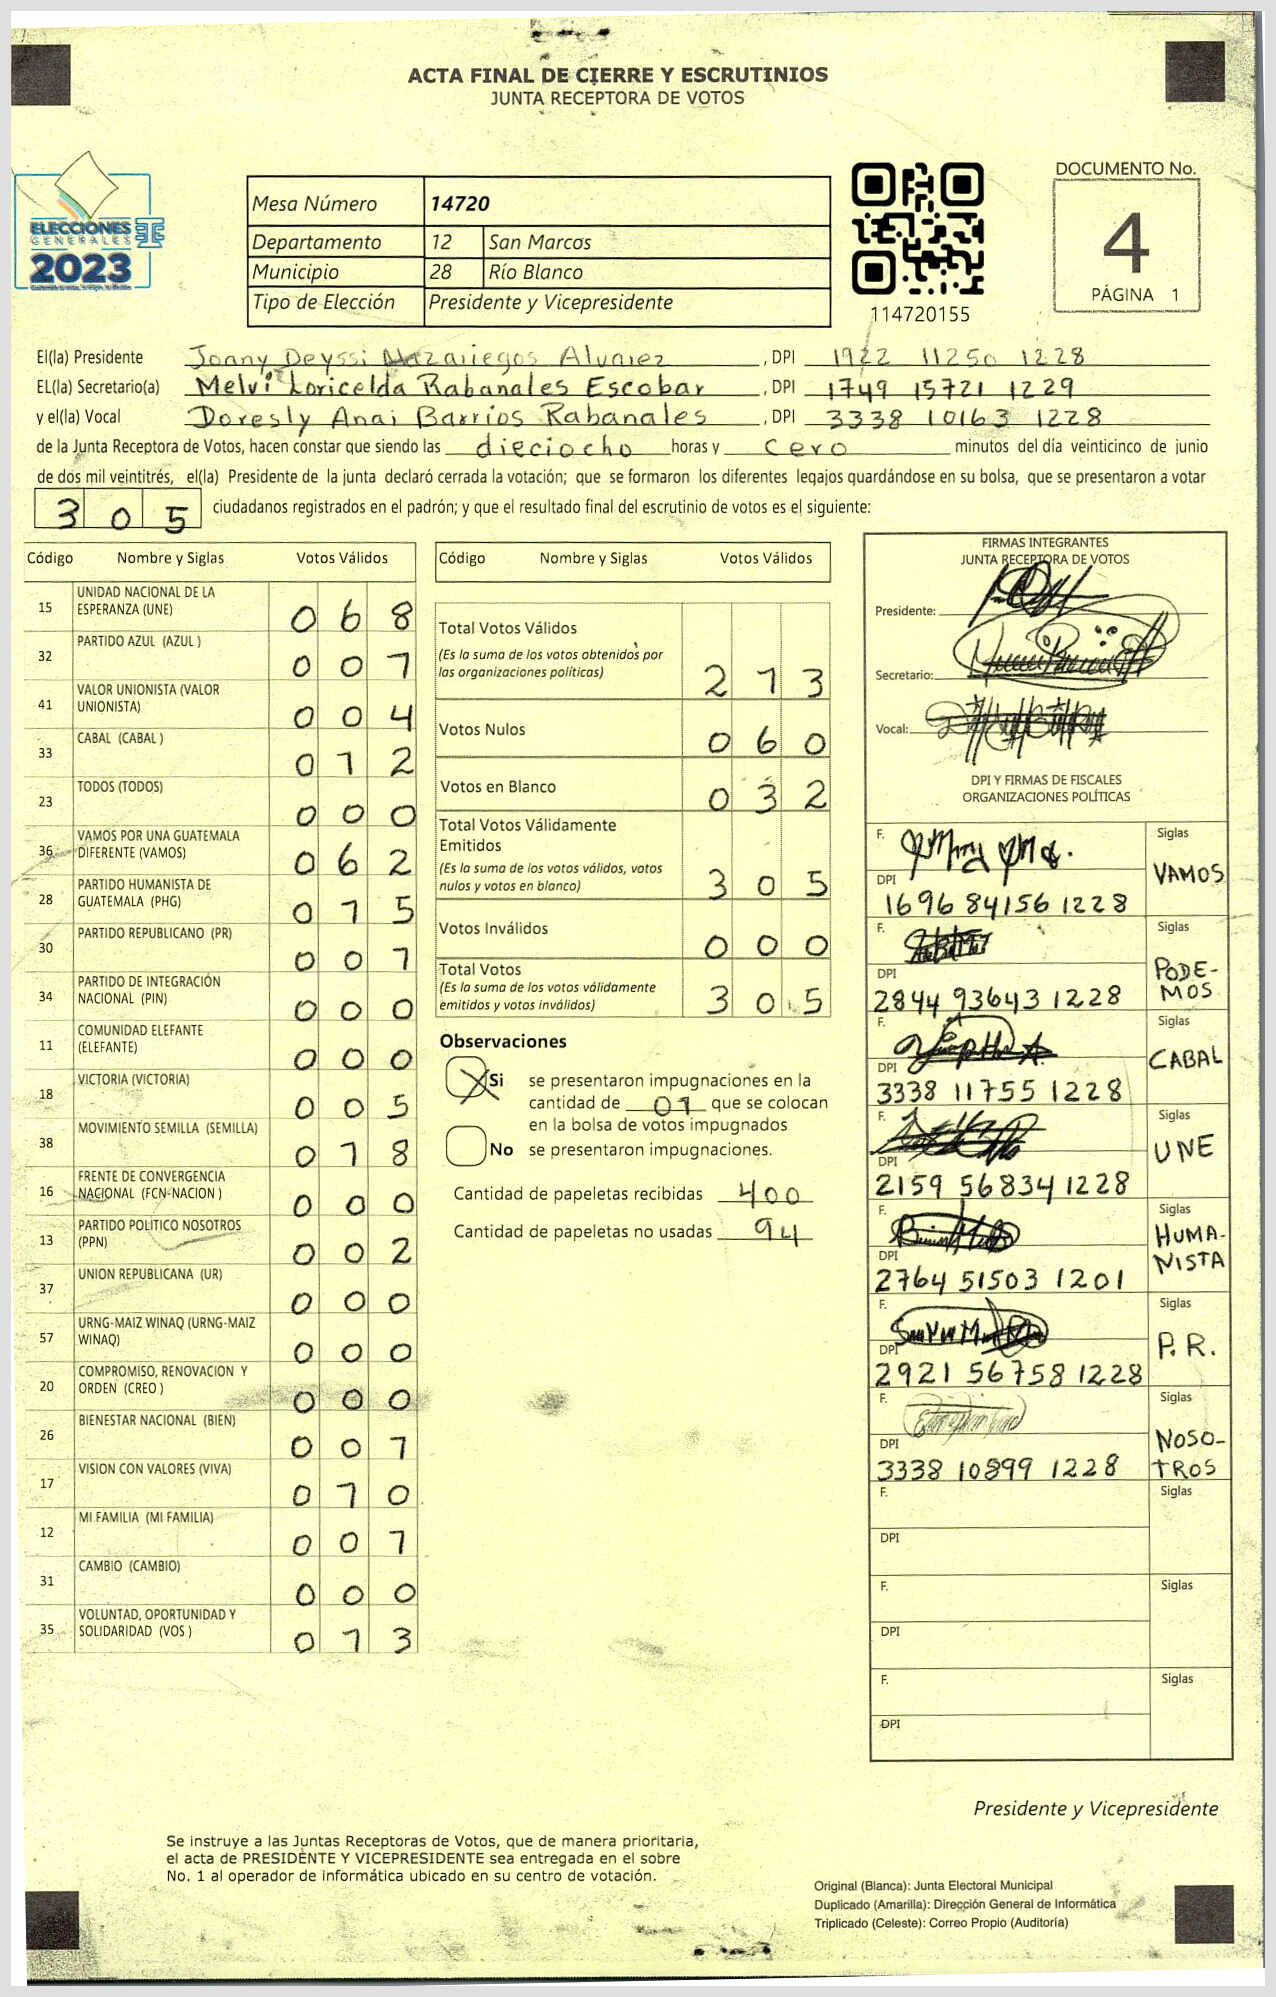 ACTA FINAL DE CIERRE Y ESCRUTINIOS
JUNTA RECEPTORA DE VOTOS
ELECCIONES
GENERALES
2023
Mesa Número 14720
Departamento 12 San Marcos
Municipio 28 Río Blanco
Tipo de Elección Presidente y Vicepresidente
114720155
DOCUMENTO No.
4
PÁGINA 1
El(la) Presidente Joany Deyssi Mazariegos Alvarez, DPI 1922 11250 1228
EL(la) Secretario(a) Melvi Loricelda Rabanales Escobar, DPI 1749 15721 1229
y el(la) Vocal Doresly Anai Barrios Rabanales, DPI 3338 10163 1228
de la Junta Receptora de Votos, hacen constar que siendo las dieciocho horas y cero minutos del día veinticinco de junio
de dos mil veintitrés, el(la) Presidente de la junta declaró cerrada la votación; que se formaron los diferentes legajos guardándose en su bolsa, que se presentaron a votar
305 ciudadanos registrados en el padrón; y que el resultado final del escrutinio de votos es el siguiente:
Código Nombre y Siglas Votos Válidos
15 UNIDAD NACIONAL DE LA
ESPERANZA (UNE) 0 6 8
32 PARTIDO AZUL (AZUL ) 0 0 1
41 VALOR UNIONISTA (VALOR
UNIONISTA) 0 0 4
33 CABAL (CABAL ) 0 1 2
23 TODOS (TODOS) 0 0 0
36 VAMOS POR UNA GUATEMALA
DIFERENTE (VAMOS) 0 6 2
28 PARTIDO HUMANISTA DE
GUATEMALA (PHG) 0 1 5
30 PARTIDO REPUBLICANO (PR) 0 0 1
34 PARTIDO DE INTEGRACIÓN
NACIONAL (PIN) 0 0 0
11 COMUNIDAD ELEFANTE
(ELEFANTE) 0 0 0
18 VICTORIA (VICTORIA) 0 0 5
38 MOVIMIENTO SEMILLA (SEMILLA) 0 1 8
16 FRENTE DE CONVERGENCIA
NACIONAL (FCN-NACION ) 0 0 0
13 PARTIDO POLITICO NOSOTROS
(PPN) 0 0 2
37 UNION REPUBLICANA (UR) 0 0 0
57 URNG-MAIZ WINAQ (URNG-MAIZ
WINAQ) 0 0 0
20 COMPROMISO, RENOVACION Y
ORDEN (CREO ) 0 0 0
26 BIENESTAR NACIONAL (BIEN) 0 0 1
17 VISION CON VALORES (VIVA) 0 1 0
12 MI FAMILIA (MI FAMILIA) 0 0 1
31 CAMBIO (CAMBIO) 0 0 0
35 VOLUNTAD, OPORTUNIDAD Y
SOLIDARIDAD (VOS ) 0 1 3
Código Nombre y Siglas Votos Válidos
Total Votos Válidos
(Es la suma de los votos obtenidos por
las organizaciones políticas) 2 1 3
Votos Nulos 0 6 0
Votos en Blanco 0 3 2
Total Votos Válidamente
Emitidos
(Es la suma de los votos válidos, votos
nulos y votos en blanco) 3 0 5
Votos Inválidos 0 0 0
Total Votos
(Es la suma de los votos válidamente
emitidos y votos inválidos) 3 0 5
Observaciones
X Si se presentaron impugnaciones en la
cantidad de 01 que se colocan
en la bolsa de votos impugnados
No se presentaron impugnaciones.
Cantidad de papeletas recibidas 400
Cantidad de papeletas no usadas 94
FIRMAS INTEGRANTES
JUNTA RECEPTORA DE VOTOS
Presidente:
Secretario:
Vocal:
DPI Y FIRMAS DE FISCALES
ORGANIZACIONES POLÍTICAS
F. Siglas
VAMOS
DPI
1696 84156 1228
F. Siglas
PODE-
MOS
DPI
2844 93643 1228
F. Siglas
CABAL
DPI
3338 11755 1228
F. Siglas
UNE
DPI
2159 56834 1228
F. Siglas
HUMA-
NISTA
DPI
2764 51503 1201
F. Siglas
P. R.
DPI
2921 56758 1228
F. Siglas
NOSO-
TROS
DPI
3338 10899 1228
F. Siglas
DPI
F. Siglas
DPI
F. Siglas
DPI
Presidente y Vicepresidente
Se instruye a las Juntas Receptoras de Votos, que de manera prioritaria,
el acta de PRESIDENTE Y VICEPRESIDENTE sea entregada en el sobre
No. 1 al operador de informática ubicado en su centro de votación.
Original (Blanca): Junta Electoral Municipal
Duplicado (Amarilla): Dirección General de Informática
Triplicado (Celeste): Correo Propio (Auditoría)